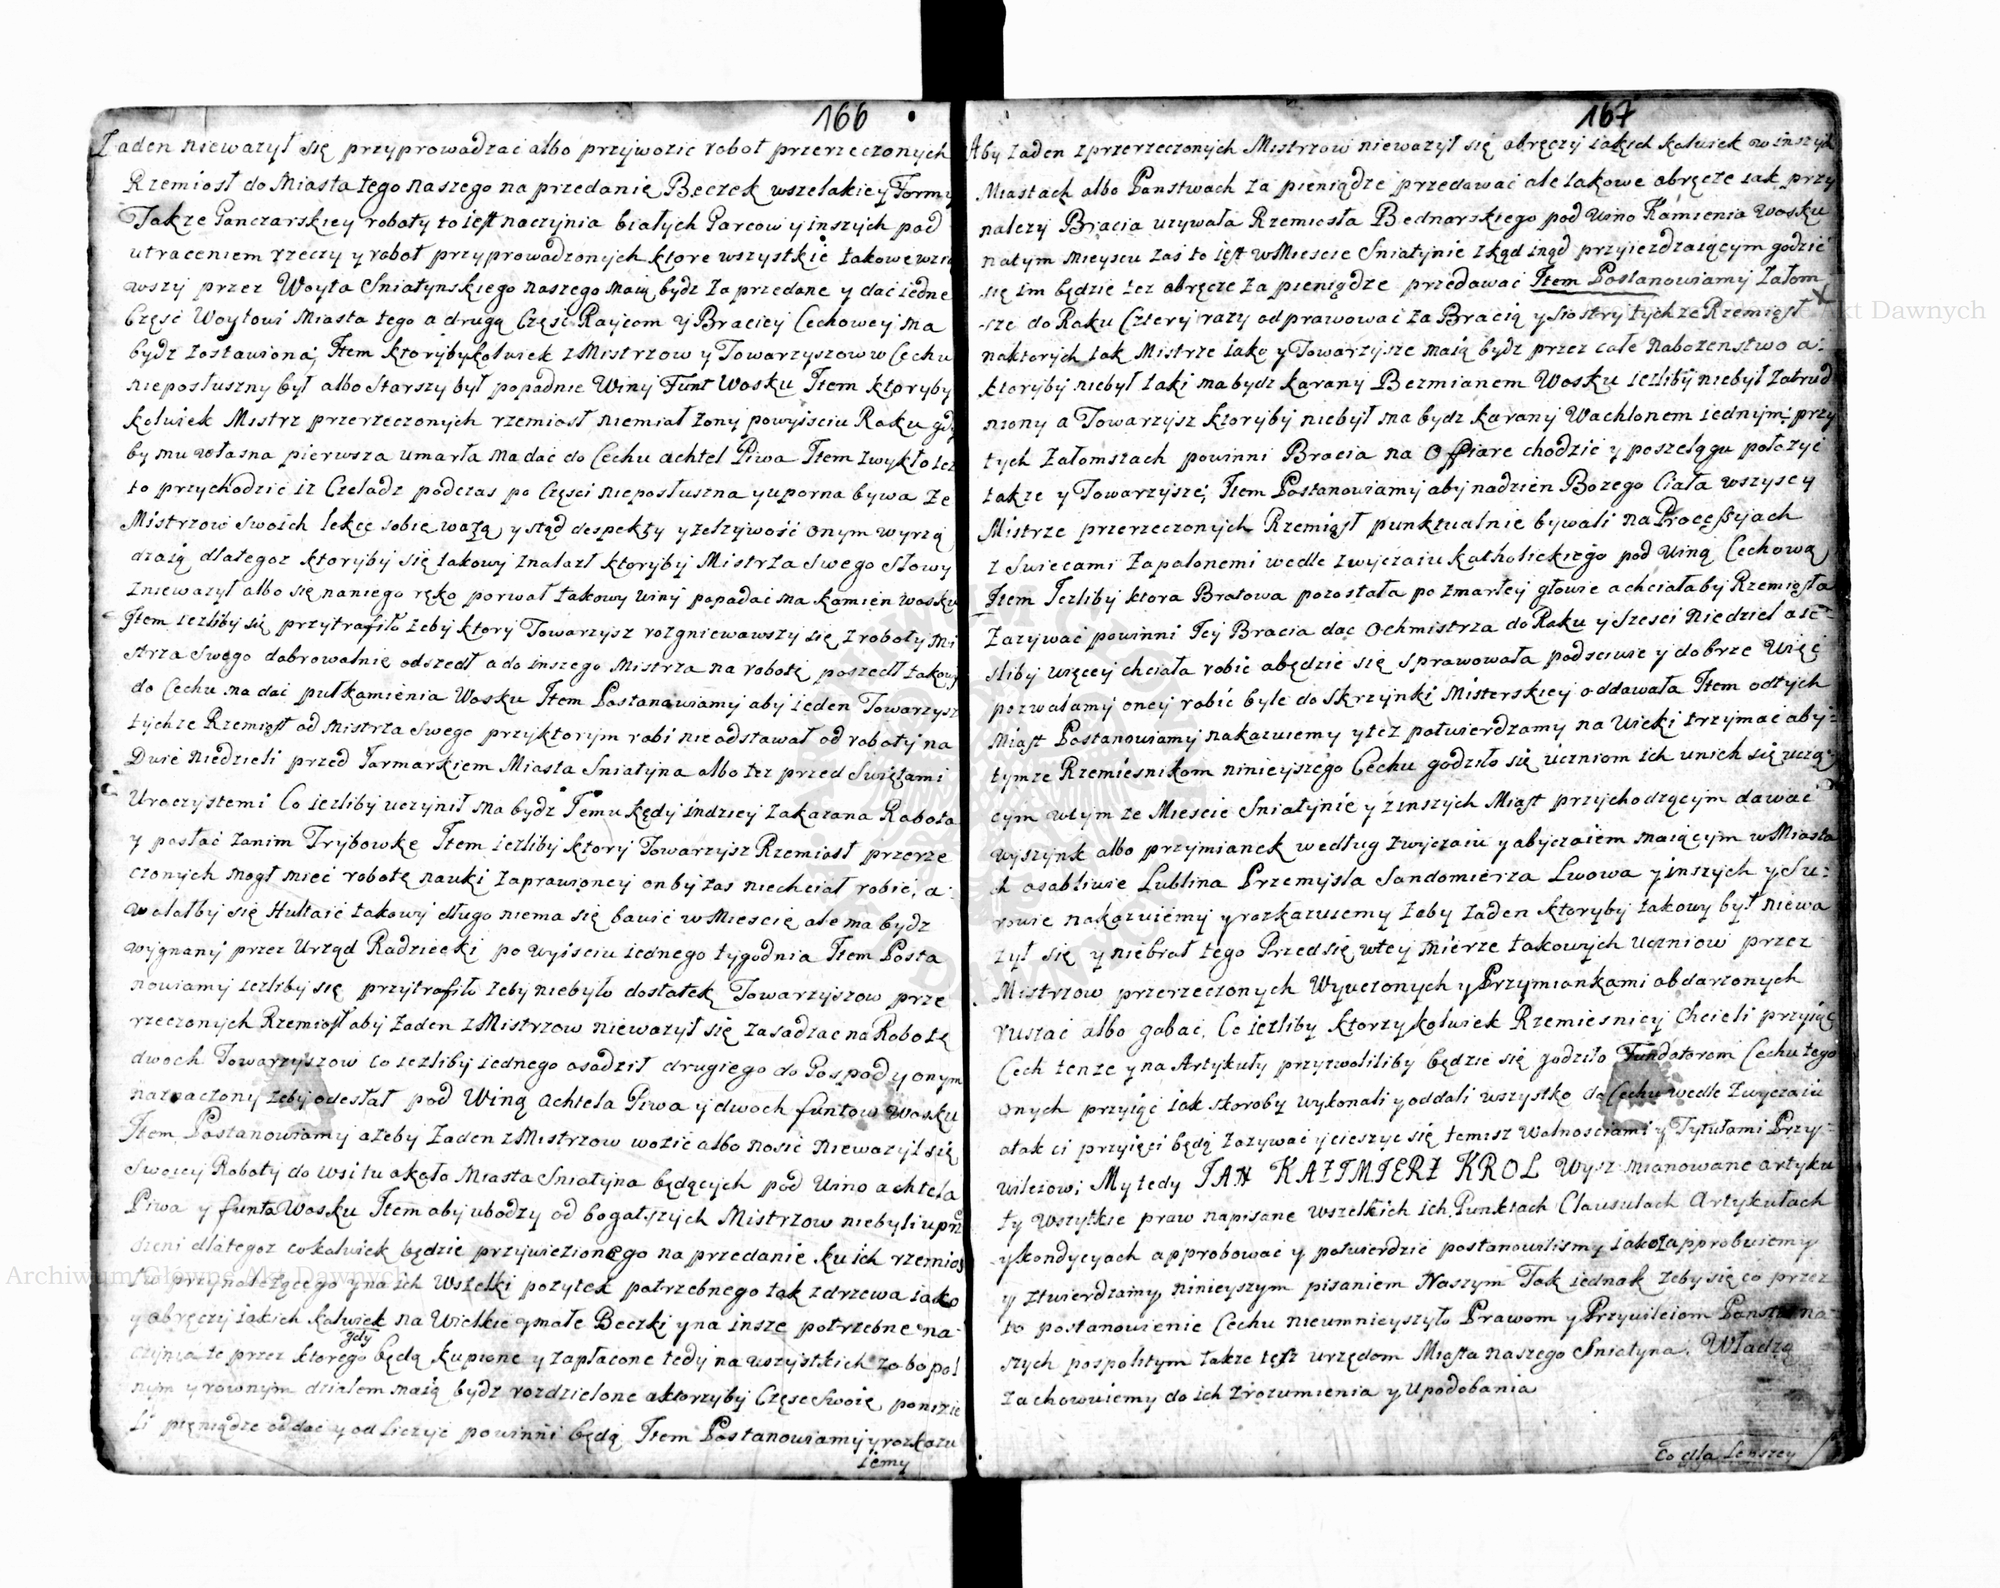 166
Zaden niewazył się przyprowadzac albo przywozic robot przerzeczonych
Rzemiosł do Miasta tego naszego na przedanie Beczek wszelakiey Formy
Takze Ganczarskiey roboty to iest naczynia białych Garcow y inszych pod
utraceniem rzeczy y robot przyprowadzonych ktore wszystkie takowe wzią
wszy przez Woyta Sniatynskiego naszego maią bydz zaprzedane y dac iedne
Częsc Woytowi Miasta tego a drugą Częsc Raycom y Braciey Cechowey ma
bydz zostawiona; Item ktorybykolwiek z Mistrzow y Towarzyszow w Cechu
nieposłuszny był albo Starszy był popadnie Winy Funt Wosku Item ktoryby
kolwiek Mistrz przerzeczonych rzemiosł niemiał zony powyisciu Roku gdy
by mu własna pierwsza umarła ma dac do Cechu achtel Piwa Item zwykło tez
to przychodzic iz Czeladz podczas po Częsci nieposłuszna y uporna bywa ze
Mistrzow swoich lekce sobie wazą y stąd despekty y zelzywość onym wyrzą
dzaią dlategoz ktoryby się takowy znalazł ktoryby Mistrza swego słowy
zniewazył albo się naniego ręko porwał takowy winy popadać ma kamien wosku
Item iezliby się przytrafiło zeby ktory Towarzysz rozgniewawszy się z roboty Mi
strza swego dobrowalnie odszedł a do inszego Mistrza na robotę poszedł takowy
do Cechu ma dac pułkamienia Wosku Item Postanawiamy aby ieden Towarzysz
tychze Rzemiosł od Mistrza swego przyktorym robi nie odstawał od roboty na
Dwie niedzieli przed Jarmarkiem Miasta Sniatyna albo tez przed Swiętami
Uroczystemi Co iezliby uczynił ma bydz Temu kędy indziey zakazana Robota
y posłać zanim Trybowkę Item iezliby ktory Towarzysz Rzemiosł przerze
czonych mogł mieć robotę nauki zaprawioney onby zas niechciał robić, a
wolałby się Hultaić takowy długo niema się bawić w Miescie ale ma bydz
wygnany przez Urząd Radziecki po wyisciu iednego tygodnia Item Posta
nowiamy iezliby się przytrafiło zeby niebyło dostatek Towarzyszow prze
rzeczonych Rzemiosł aby zaden z Mistrzow niewazył się zasadzac na Robotę
dwoch Towarzyszow co iezliby iednego osadził drugiego do Gospody onym
naznaczony zeby odesłał pod Winą achtela Piwa y dwoch funtow Wosku
Item Postanowiamy azeby zaden z Mistrzow wozic albo nosic niewazył się
Swoiey Roboty do wsi tu około Miasta Sniatyna będących pod Wino achtela
Piwa y funta Wosku Item aby ubodzy od bogatszych Mistrzow niebyli uprze
dzeni dlategoz cokolwiek będzie przywiezionego na przedanie ku ich rzemios
łu przynalezącego y na ich Wszelki pozytek potrzebnego tak z drzewa iako
y obręczy iakich kolwiek na Wielkie y małe Beczki y na insze potrzebne na
czynia te przez ktorego gdy będą kupione y zapłacone tedy na wszystkich zobopol
nym y rownym działem maią bydz rozdzielone a ktorzyby Częsc swoię poniezie
li pięniądze oddac y odliczyc powinni będą Item Postanowiamy y rozkazu
iemy
167
Aby zaden z przerzeczonych Mistrzow niewazył się obręczy iakich kolwiek w inszych
Miastach albo Panstwach za pieniądze przedawać ale takowe obręcze iak przy
nalezy Bracia uzywała Rzemiosła Bednarskiego pod Wino Kamienia Wosku
natym mieyscu zas to iest w Miescie Sniatynie zkąd inąd przyiezdzaiącym godzic
się im będzie tez obręcze za pieniądze przedawać Item Postanowiamy Załom
sze do Roku Cztery razy odprawować za Bracią y siostry tychze Rzemiosł
naktorych tak Mistrze iako y Towarzysze maią bydz przez całe nabozenstwo a
ktoryby niebył taki ma bydz karany Bezmianem Wosku iezliby niebył zatrud
niony a Towarzysz ktoryby niebył ma bydz karany Wachlonem iednym przy
tych załomszach powinni Bracia na Offiarę chodzić y poszelągu połozyć
takze y Towarzysze; Item Postanowiamy aby nadzien Bozego Ciała wszyscy
Mistrze przerzeczonych Rzemiosł punktualnie bywali na Processyiach
z Swiecami zapalonemi wedle zwyczaiu katholickiego pod winą Cechową
Item Iezliby ktora Bratowa pozostała po zmarłey głowie a chciałaby Rzemiosła
Zazywać powinni Iey Bracia dac Ochmistrza do Roku y szesci Niedziel a ie
sliby więcey chciała robić a będzie się sprawowała podsciwie y dobrze Więc
pozwalamy oney robić byle do Skrzynki Misterskiey oddawała Item odtych
Miast Postanowiamy nakazuiemy y tez potwierdzamy na Wieki trzymać aby
tymze Rzemiesnikom ninieyszego Cechu godziło się uczniom ich unich się uczą
cym wtym ze Miescie Sniatynie y z inszych Miast przychodzącym dawać
wyszynk albo przymianek według zwyczaiu y abyczaiem maiącym w Miasta
ch osobliwie Lublina Przemysla Sandomierza Lwowa y inszych y Su
rowie nakazuiemy y rozkazuiemy zeby zaden ktoryby takowy był niewa
zył się y niebrał tego Przedsię wtey mierze takowych uczniow przez
Mistrzow przerzeczonych Wyuczonych y Przymiankami obdarzonych
ruszać albo gabać. Co iezliby ktorzykolwiek Rzemiesnicy Chcieli przyiąć
Cech tenze y na Artykuły przyzwoliliby będzie się godziło Fundatorom Cechu tego
onych przyiąć iak skoroby wykonali y oddali wszystko do Cechu wedle zwyczaiu
a tak ci przyięci będą zazywać y cieszyc się temisz Wolnosciami y Tytułami Przy
wileiow; My tedy IAN KAZIMIERZ KROL Wysz mianowane artyku
ły wszytkie praw napisane wszelkich ich Punktach Clausulach Artykułach
y kondycyach approbować y potwierdzic postanowiliśmy iakoz approbuiemy
y ztwierdzamy ninieyszym pisaniem Naszym Tak iednak zeby się co przez
to postanowienie Cechu nieumnieyszyło Prawom y Przywileiom Panstw na
szych pospolitym takze tesz urzędom Miasta naszego Sniatyna. Władzą
zachowuiemy do ich zrozumienia y Upodobania
Co dla lenszey